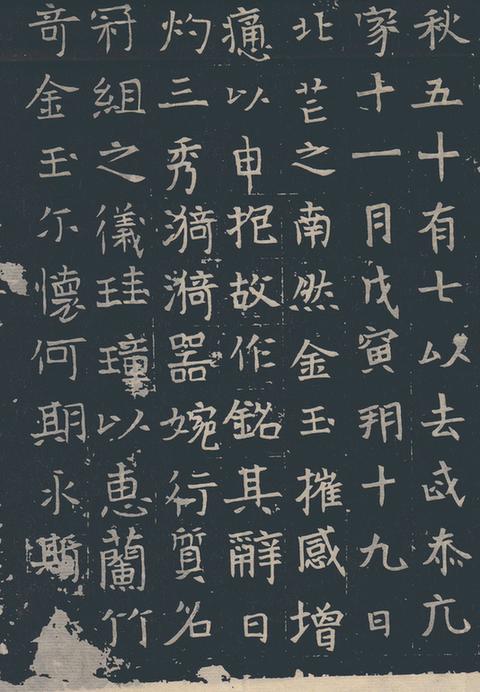 秋五十有七以去歲忝亢
家十一月戊寅朔十九日
北芒之南然金玉摧感增
以申抱故作銘其辭曰
灼三秀漪漪器婉行質名
冠組之儀珪璋以惠蘭竹
奇金玉尔懷何期永斯